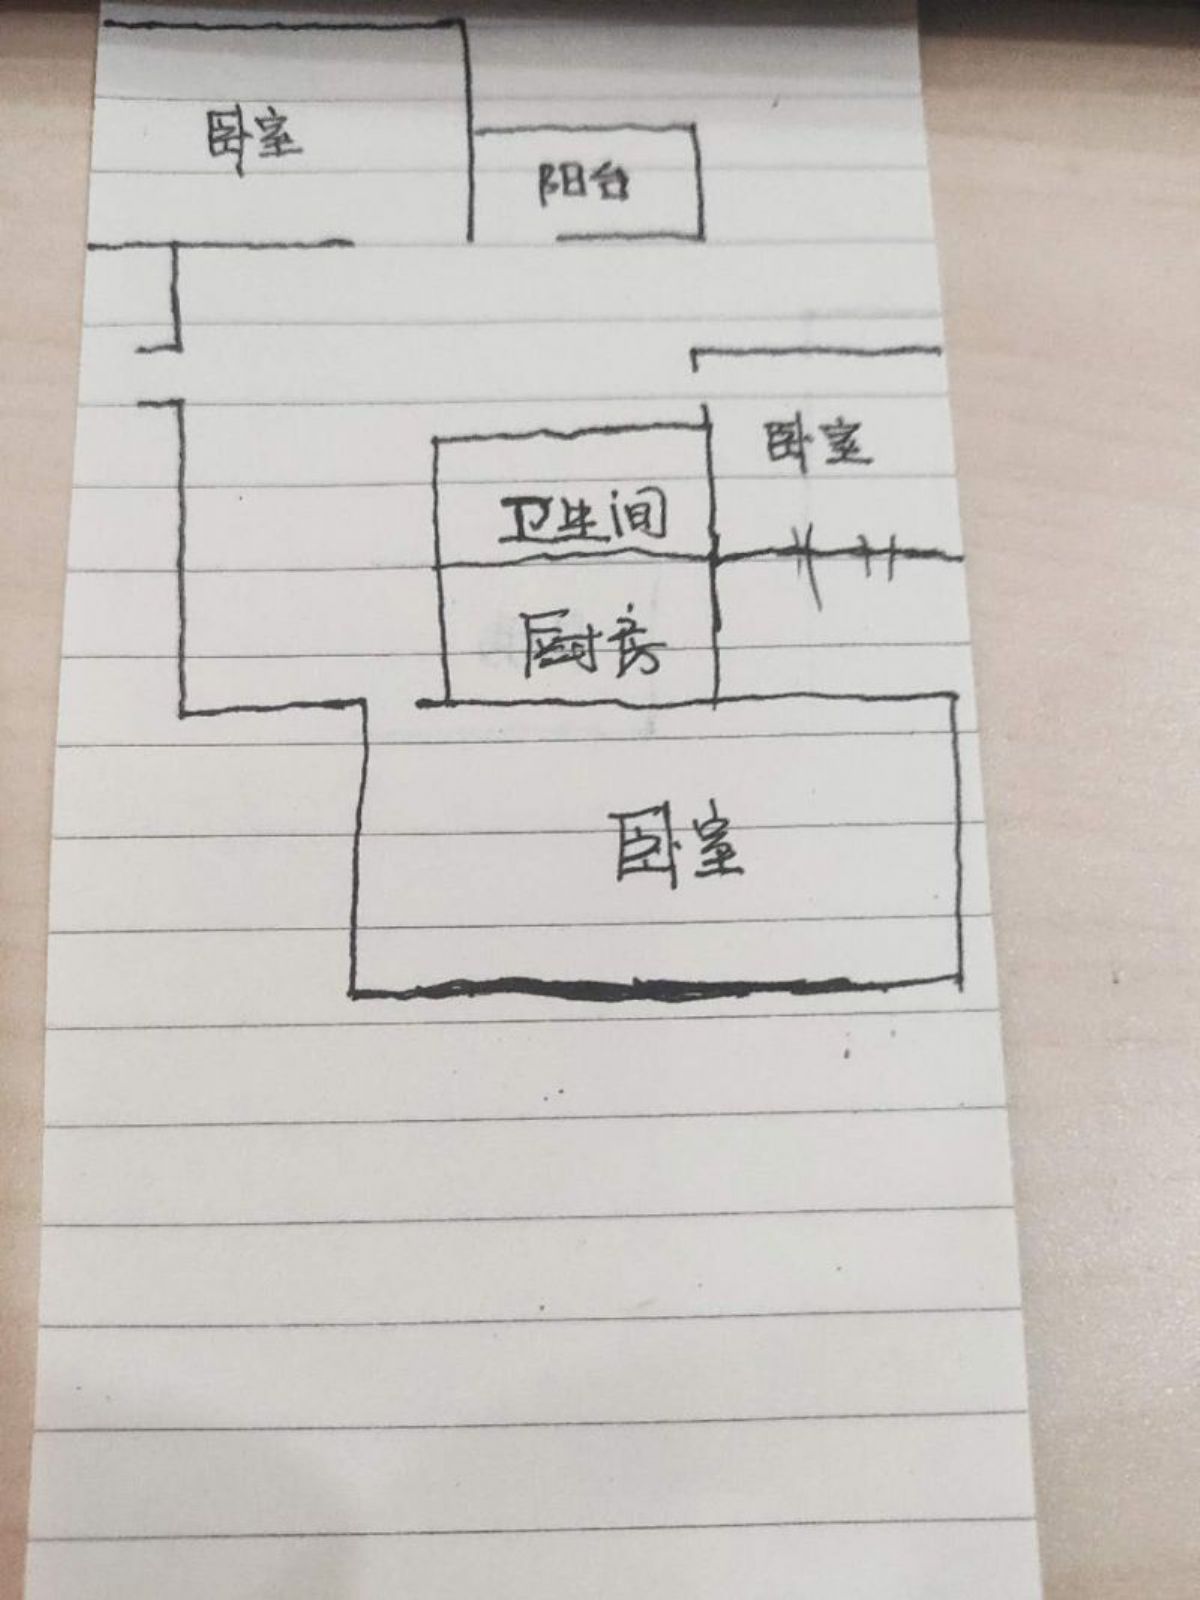 卧室
阳台
卧室
卫生间
厨房
卧室